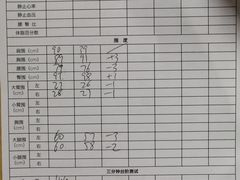 静止心率
静止血压
腰臀比
体脂百分数
围度
胸围 (cm) 90 79
腰围 (cm) 89 91 +3
腹围 (cm) 79 76 -3
臀围 (cm) 97 98 +1
大臂围 (cm) 左 27 26 -1
右 28 27 -1
小臂围 (cm) 左
右
胸围 (cm) 左
右
大腿围 (cm) 左 60 57 -3
右 60 58 -2
小腿围 (cm) 左
右
三分钟台阶测试